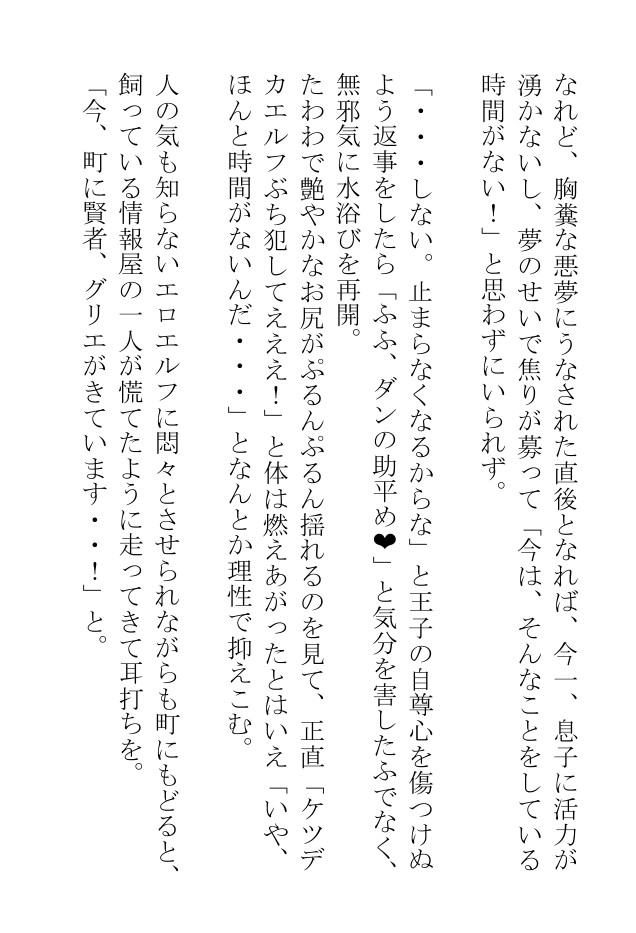 なれど、胸糞な悪夢にうなされた直後となれば、今一、息子に活力が
湧かないし、夢のせいで焦りが募って「今は、そんなことをしている
時間がない！」と思わずにいられず。
「・・・しない。止まらなくなるからな」と王子の自尊心を傷つけぬ
よう返事をしたら「ふふ、ダンの助平め❤」と気分を害したふでなく、
無邪気に水浴びを再開。
たわわで艶やかなお尻がぷるんぷるん揺れるのを見て、正直「ケツデ
カエルフぶち犯してえええ！」と体は燃えあがったとはいえ「いや、
ほんと時間がないんだ・・・」となんとか理性で抑えこむ。
人の気も知らないエロエルフに悶々とさせられながらも町にもどると、
飼っている情報屋の一人が慌てたように走ってきて耳打ちを。
「今、町に賢者、グリエがきています・・！」と。